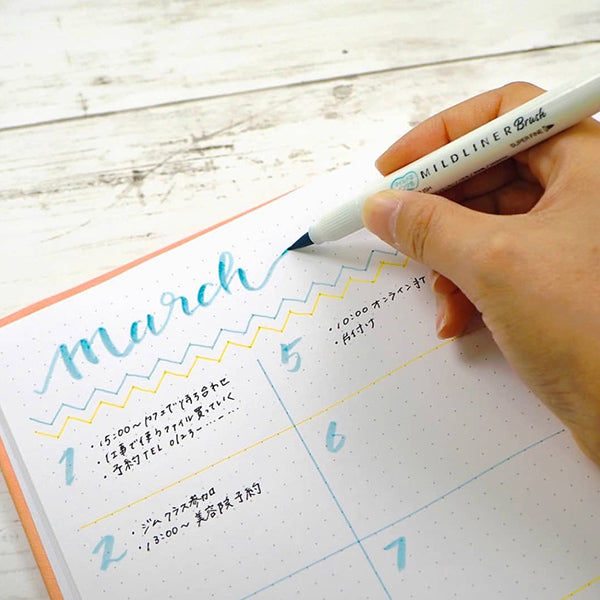 MILDLINER Brush
SUPER FINE
march
1
・15:00〜カフェで待ち合わせ
・仕事で使うファイル買っていく
・予約TEL 0123-...-...
2
・ジムクラス参加
・13:00〜美容院予約
5
・10:00 オンライン打
・片付け
6
7